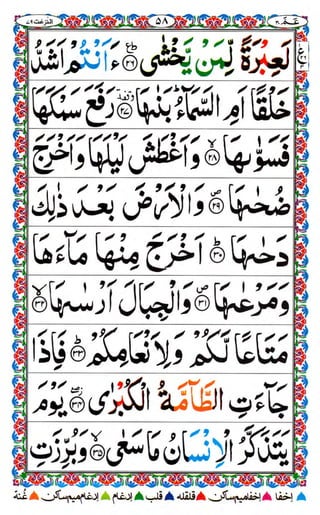 النّٰزعٰت ٧٩ ٥٨ عـمّ ٣٠
لَعِبْرَةً لِّمَنْ يَّخْشٰى ﴿٢٦﴾ ءَاَنْتُمْ اَشَدُّ
خَلْقًا اَمِ السَّمَآءُ ؕ بَنٰىهَا ﴿٢٧﴾ رَفَعَ سَمْكَهَا
فَسَوّٰىهَا ﴿٢٨﴾ وَاَغْطَشَ لَيْلَهَا وَاَخْرَجَ
ضُحٰىهَا ﴿٢٩﴾ وَالْاَرْضَ بَعْدَ ذٰلِكَ
دَحٰىهَا ﴿٣٠﴾ اَخْرَجَ مِنْهَا مَآءَهَا
وَمَرْعٰىهَا ﴿٣١﴾ وَالْجِبَالَ اَرْسٰىهَا ﴿٣٢﴾
مَتَاعًا لَّكُمْ وَلِاَنْعَامِكُمْ ﴿٣٣﴾ فَاِذَا
جَآءَتِ الطَّآمَّةُ الْكُبْرٰى ﴿٣٤﴾ يَوْمَ
يَتَذَكَّرُ الْاِنْسَانُ مَا سَعٰى ﴿٣٥﴾ وَبُرِّزَتِ
اخفا اخفامیم ساکن قلقله قلب ادغام ادغام میم ساکن غنة